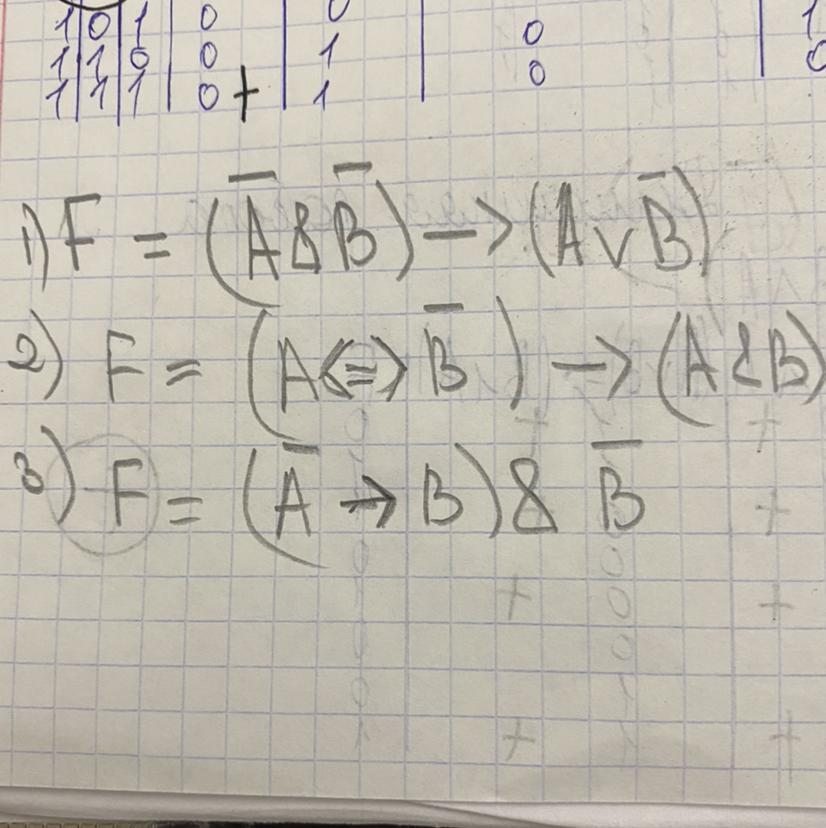 1 | 0 | 1 | 0 | 0 | | 1
1 | 1 | 0 | 0 | 1 | 0 | 0
1 | 1 | 1 | 0 + | 1 | 0
1) F = (A̅ & B̅) → (A ∨ B̅)
2) F = (A <=> B̅) → (A & B)
3) F = (A̅ → B) & B̅